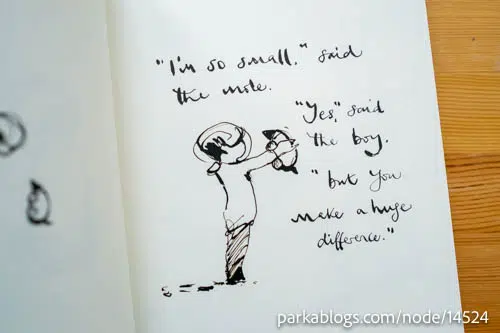 "I'm so small," said
the mole.
"Yes," said
the boy,
"but you
make a huge
difference."
parkablogs.com/node/14524